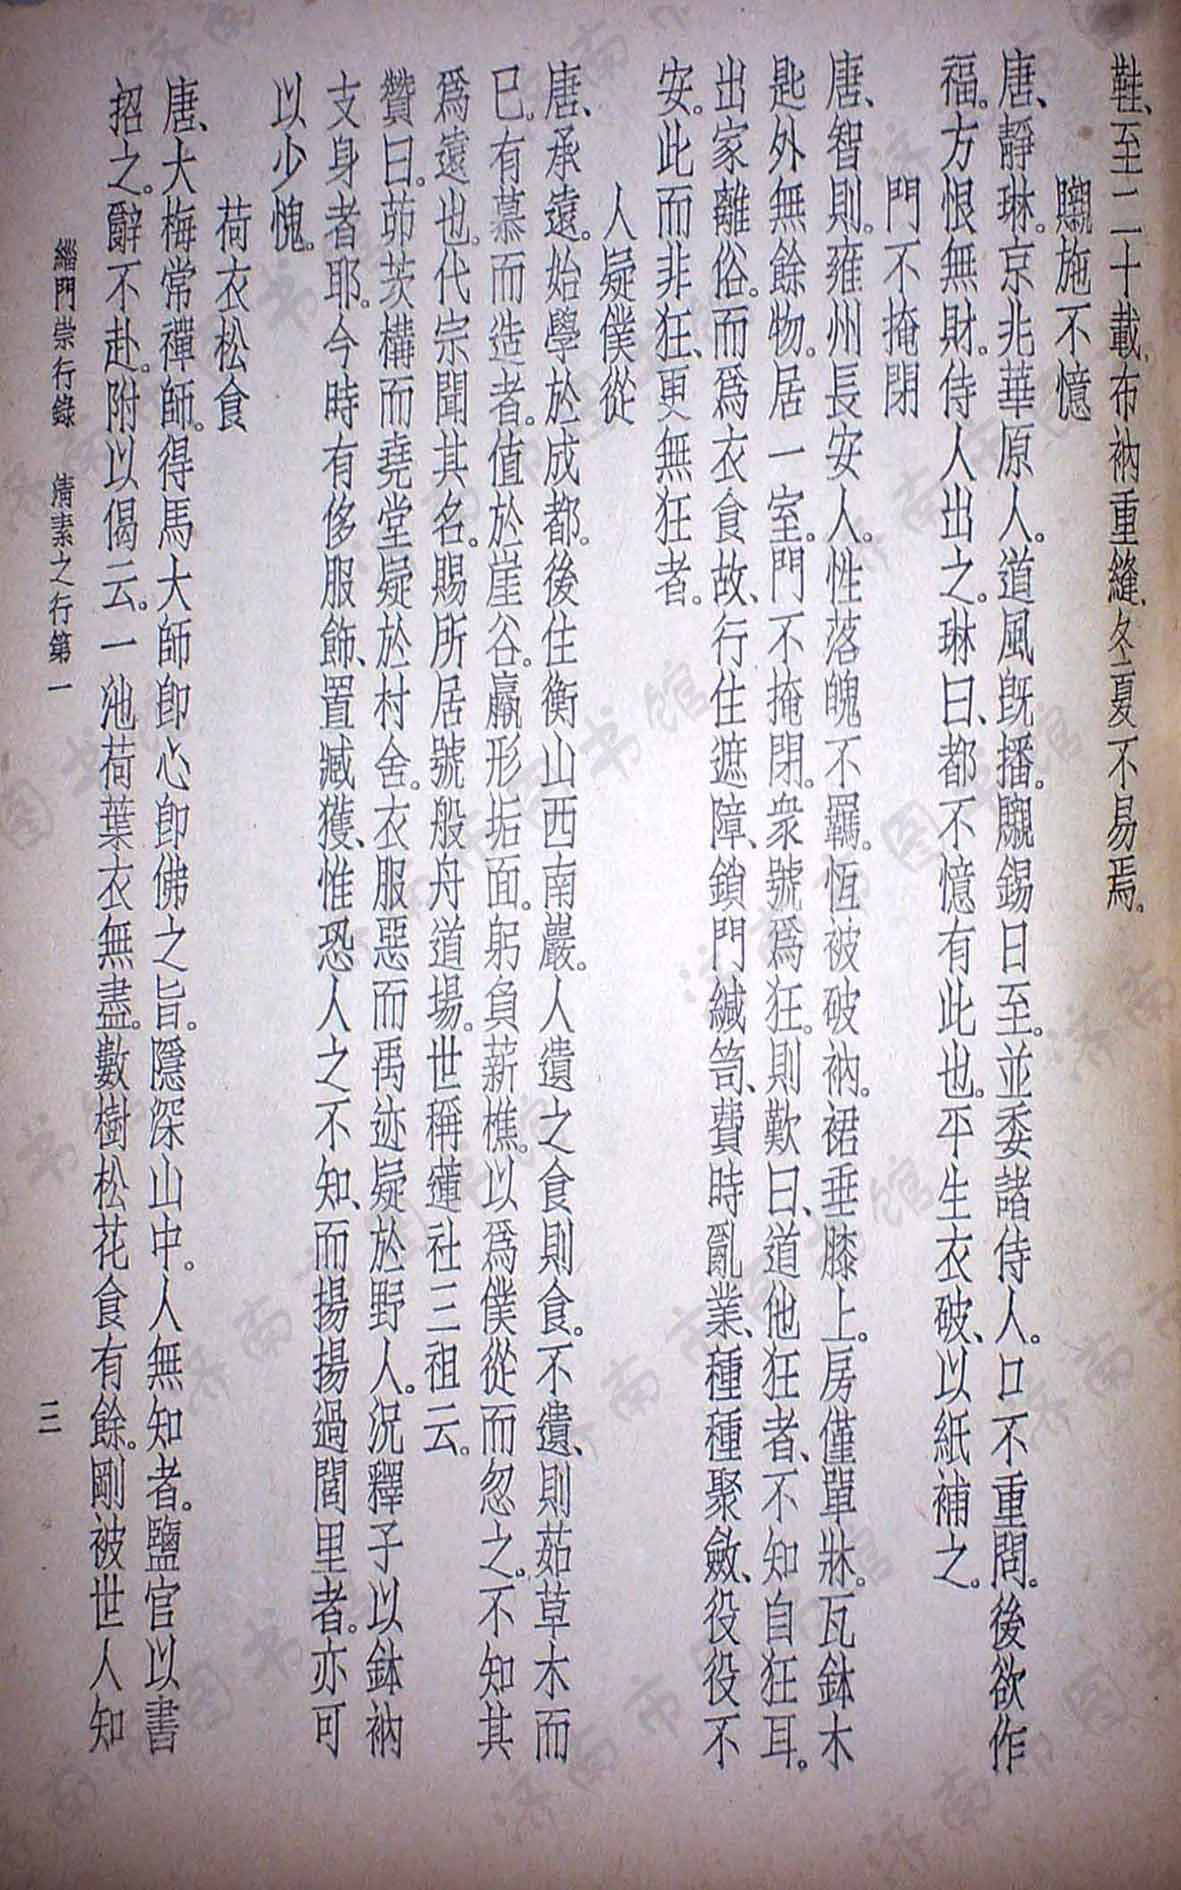 鞋、至二十載、布衲重縫、冬夏不易焉。
嚫施不憶
唐、靜琳。京兆華原人。道風既播。嚫錫日至。並委諸侍人。口不重問。後欲作
福。方恨無財。侍人出之。琳曰、都不憶有此也。平生衣破、以紙補之。
門不掩閉
唐、智則。雍州長安人。性落魄不羈。恆被破衲。裙垂膝上。房僅單牀。瓦鉢木
匙外無餘物。居一室。門不掩閉。衆號爲狂。則歎曰、道他狂者、不知自狂耳。
出家離俗。而爲衣食故、行住遮障、鎖門緘笥、費時亂業、種種聚斂、役役不
安。此而非狂、更無狂者。
人疑僕從
唐、承遠。始學於成都。後住衡山西南巖。人遺之食則食。不遺、則茹草木而
已。有慕而造者。值於崖谷。羸形垢面。躬負薪樵。以爲僕從而忽之。不知其
爲遠也。代宗聞其名。賜所居號般舟道場。世稱蓮社三祖云。
贊曰。茆茨構而堯堂疑於村舍。衣服惡而禹迹疑於野人。況釋子以鉢衲
支身者耶。今時有侈服飾、置臧獲、惟恐人之不知、而揚揚過閭里者。亦可
以少愧。
荷衣松食
唐、大梅常禪師。得馬大師卽心卽佛之旨。隱深山中。人無知者。鹽官以書
招之。辭不赴。附以偈云。一池荷葉衣無盡。數樹松花食有餘。剛被世人知
緇門崇行錄 清素之行第一
三
济南市图书馆